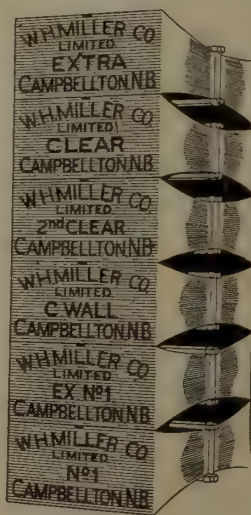 W.H.MILLER CO.
LIMITED
EXTRA
CAMPBELLTON.N.B.
W.H.MILLER CO.
LIMITED
CLEAR
CAMPBELLTON.N.B.
W.H.MILLER CO.
LIMITED
2nd CLEAR
CAMPBELLTON.N.B.
W.H.MILLER CO.
LIMITED
C.WALL
CAMPBELLTON.N.B.
W.H.MILLER CO.
LIMITED
EX Nº1
CAMPBELLTON.N.B.
W.H.MILLER CO.
LIMITED
Nº1
CAMPBELLTON.N.B.